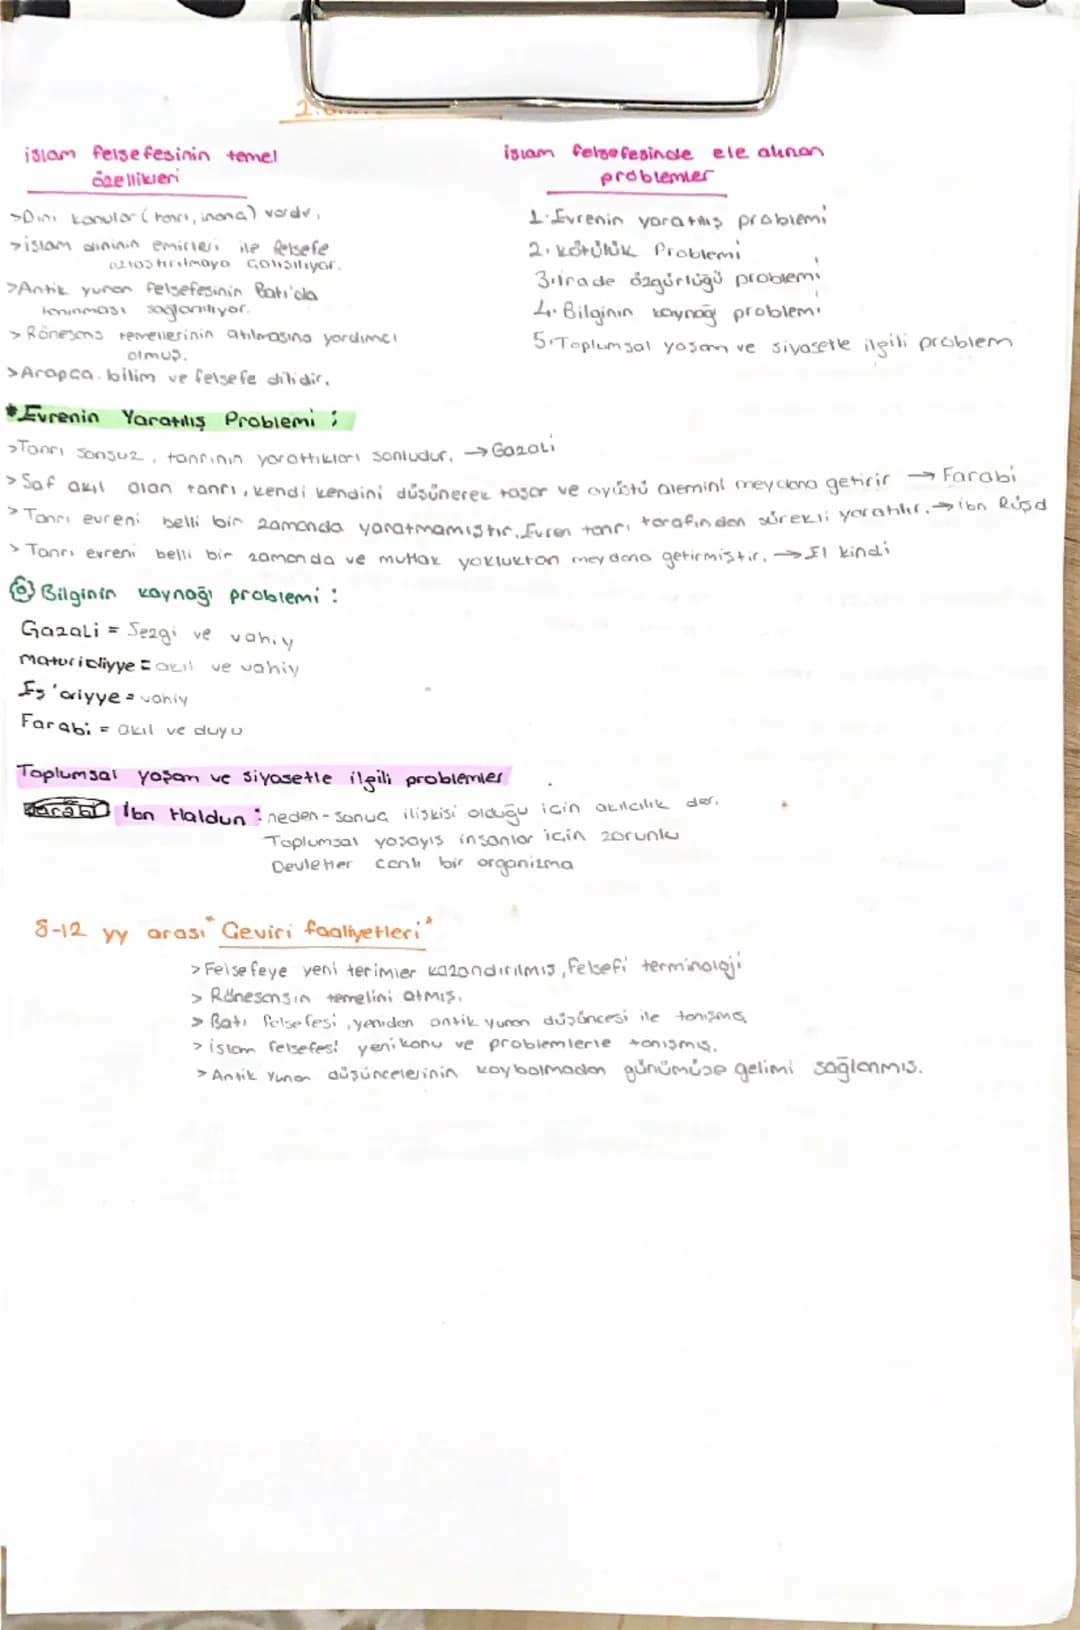 islam felsefesinin temel
özellikleri
>Dini konular (tanrı, inanç) vardır.
>islam dininin emirleri ile felsefe
uzlaştırılmaya çalışılıyor.
>Antik yunan felsefesinin Batı'da
tanınması sağlanılıyor.
>Rönesans temellerinin atılmasına yardımcı
olmuş.
>Arapça bilim ve felsefe dilidir.
islam felsefesinde ele alınan
problemler
1. Evrenin yaratılış problemi
2. kötülük Problemi
3. irade özgürlüğü problemi
4. Bilginin kaynağı problemi
5. Toplumsal yaşam ve siyasetle ilgili problem
*Evrenin Yaratılış Problemi ;
>Tanrı sonsuz, tanrının yarattıkları sonludur. → Gazali
>Saf akıl olan tanrı, kendi kendini düşünerek taşar ve ayüstü alemini meydana getirir → Farabi
>Tanrı evreni belli bir zamanda yaratmamıştır. Evren tanrı tarafından sürekli yaratılır. → ibn Rüşd
>Tanrı evreni belli bir zamanda ve mutlak yokluktan meydana getirmiştir. → El kindi
Bilginin kaynağı problemi :
Gazali = Sezgi ve vahiy
maturidiyye = akıl ve vahiy
Eş'ariyye = vahiy
Farabi = akıl ve duyu
Toplumsal yaşam ve siyasetle ilgili problemler
Farabi İbn Haldun : neden-sonuç ilişkisi olduğu için akılcılık der.
Toplumsal yaşayış insanlar için zorunlu
Devletler canlı bir organizma
8-12 yy arası "Çeviri faaliyetleri"
>Felsefeye yeni terimler kazandırılmış, felsefi terminoloji
>Rönesansın temelini atmış.
>Batı felsefesi, yeniden antik yunan düşüncesi ile tanışmış,
>islam felsefesi yeni konu ve problemlerle tanışmış.
>Antik Yunan düşüncelerinin kaybolmadan günümüze gelimi sağlanmış.